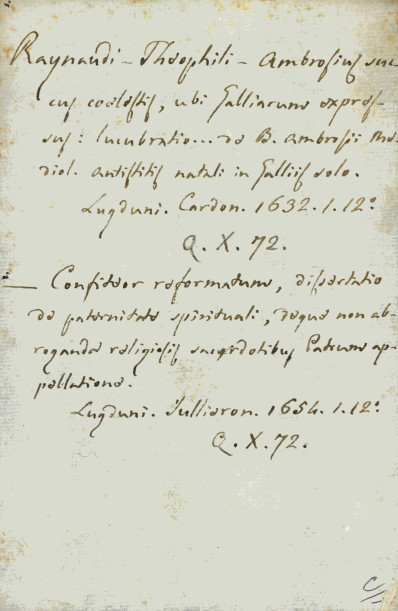 Raynaudi - Theophili - Ambrosius suc-
cus coelestis, ubi Galliarum expres-
sus: lucubratio... de B. Ambrosii Me-
diol. antistitis natali in Gallis solo.
Lugduni. Cardon. 1632. 1. 12°
Q. X. 72.
— Confiteor reformatum, dissertatio
de paternitate spirituali, deque non ab-
roganda religiosis sacerdotibus Patrum ap-
pellatione.
Lugduni. Jullieron. 1654. 1. 12°
Q. X. 72.
C